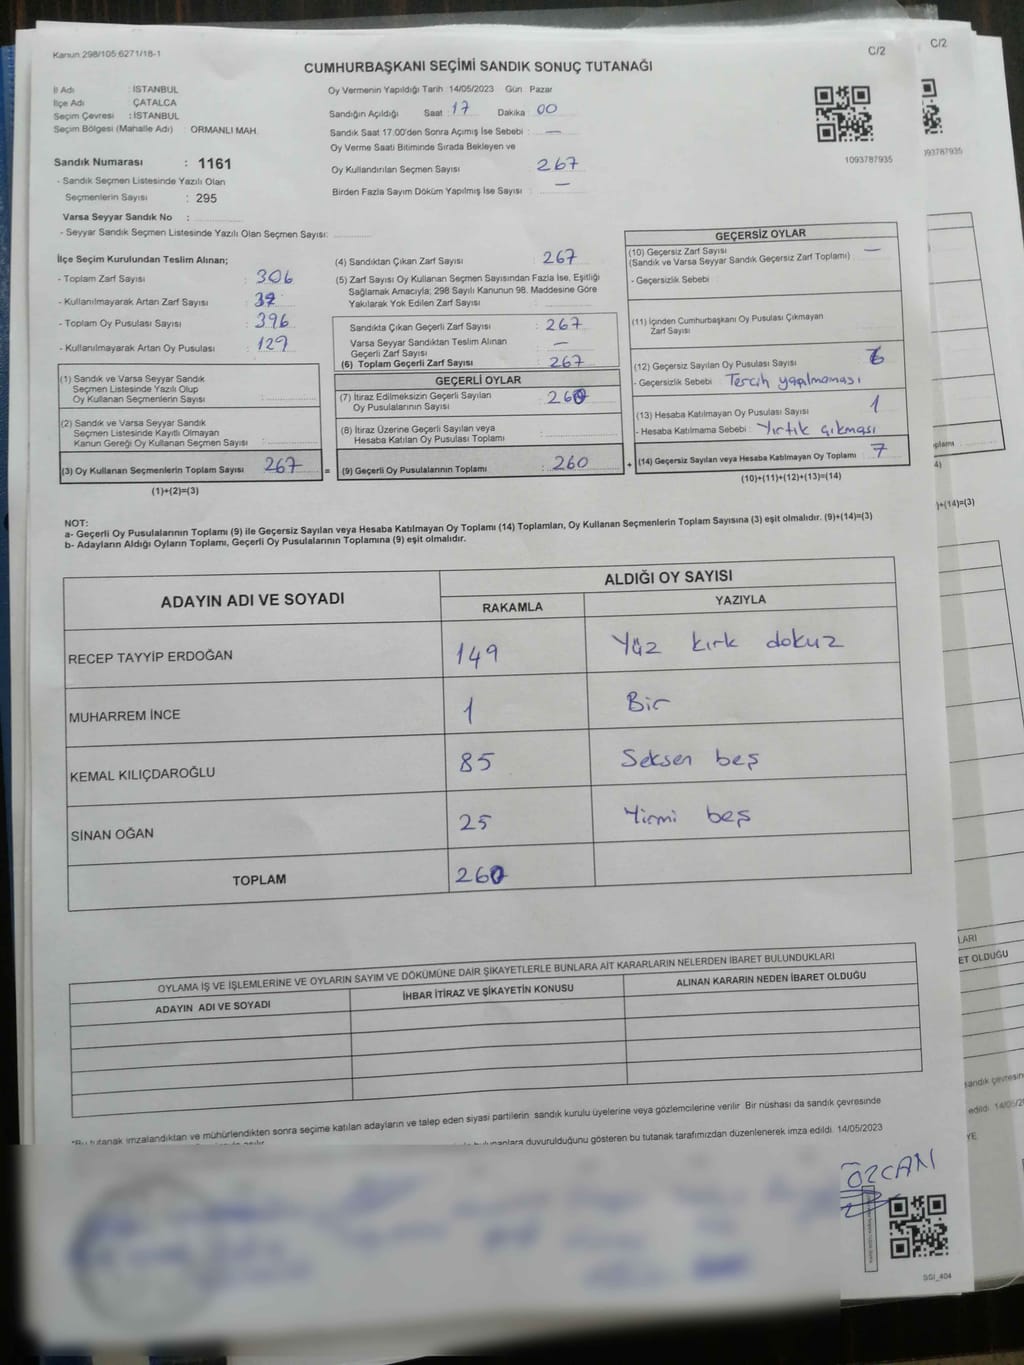 Kanun:298/105:6271/18-1
C/2
CUMHURBAŞKANI SEÇİMİ SANDIK SONUÇ TUTANAĞI
İl Adı : İSTANBUL
İlçe Adı : ÇATALCA
Seçim Çevresi : İSTANBUL
Seçim Bölgesi (Mahalle Adı) : ORMANLI MAH.
Sandık Numarası : 1161
- Sandık Seçmen Listesinde Yazılı Olan
Seçmenlerin Sayısı : 295
Varsa Seyyar Sandık No :
- Seyyar Sandık Seçmen Listesinde Yazılı Olan Seçmen Sayısı:
Oy Vermenin Yapıldığı Tarih : 14/05/2023 Gün : Pazar
Sandığın Açıldığı Saat : 17 Dakika : 00
Sandık Saat 17.00'den Sonra Açımış İse Sebebi : —
Oy Verme Saati Bitiminde Sırada Bekleyen ve
Oy Kullandırılan Seçmen Sayısı : 267
Birden Fazla Sayım Döküm Yapılmış İse Sayısı : —
1093787935
İlçe Seçim Kurulundan Teslim Alınan;
- Toplam Zarf Sayısı : 306
- Kullanılmayarak Artan Zarf Sayısı :
- Toplam Oy Pusulası Sayısı : 396
- Kullanılmayarak Artan Oy Pusulası : 129
(1) Sandık ve Varsa Seyyar Sandık
Seçmen Listesinde Yazılı Olup
Oy Kullanan Seçmenlerin Sayısı :
(2) Sandık ve Varsa Seyyar Sandık
Seçmen Listesinde Kayıtlı Olmayan
Kanun Gereği Oy Kullanan Seçmen Sayısı :
(3) Oy Kullanan Seçmenlerin Toplam Sayısı : 267 =
(1)+(2)=(3)
(4) Sandıktan Çıkan Zarf Sayısı : 267
(5) Zarf Sayısı Oy Kullanan Seçmen Sayısından Fazla İse, Eşitliği
Sağlamak Amacıyla; 298 Sayılı Kanunun 98. Maddesine Göre
Yakılarak Yok Edilen Zarf Sayısı :
Sandıkta Çıkan Geçerli Zarf Sayısı : 267
Varsa Seyyar Sandıktan Teslim Alınan
Geçerli Zarf Sayısı : —
(6) Toplam Geçerli Zarf Sayısı : 267
GEÇERLİ OYLAR
(7) İtiraz Edilmeksizin Geçerli Sayılan
Oy Pusulalarının Sayısı : 260
(8) İtiraz Üzerine Geçerli Sayılan veya
Hesaba Katılan Oy Pusulası Toplamı :
(9) Geçerli Oy Pusulalarının Toplamı : 260 +
GEÇERSİZ OYLAR
(10) Geçersiz Zarf Sayısı
(Sandık ve Varsa Seyyar Sandık Geçersiz Zarf Toplamı) : —
- Geçersizlik Sebebi :
(11) İçinden Cumhurbaşkanı Oy Pusulası Çıkmayan
Zarf Sayısı :
(12) Geçersiz Sayılan Oy Pusulası Sayısı : 6
- Geçersizlik Sebebi : Tercih yapılmaması
(13) Hesaba Katılmayan Oy Pusulası Sayısı : 1
- Hesaba Katılmama Sebebi : Yırtık çıkması
(14) Geçersiz Sayılan veya Hesaba Katılmayan Oy Toplamı : 7
(10)+(11)+(12)+(13)=(14)
NOT:
a- Geçerli Oy Pusulalarının Toplamı (9) ile Geçersiz Sayılan veya Hesaba Katılmayan Oy Toplamı (14) Toplamları, Oy Kullanan Seçmenlerin Toplam Sayısına (3) eşit olmalıdır. (9)+(14)=(3)
b- Adayların Aldığı Oyların Toplamı, Geçerli Oy Pusulalarının Toplamına (9) eşit olmalıdır.
ADAYIN ADI VE SOYADI
ALDIĞI OY SAYISI
RAKAMLA YAZIYLA
RECEP TAYYİP ERDOĞAN 149 Yüz kırk dokuz
MUHARREM İNCE 1 Bir
KEMAL KILIÇDAROĞLU 85 Seksen beş
SİNAN OĞAN 25 Yirmi beş
TOPLAM 260
OYLAMA İŞ VE İŞLEMLERİNE VE OYLARIN SAYIM VE DÖKÜMÜNE DAİR ŞİKAYETLERLE BUNLARA AİT KARARLARIN NELERDEN İBARET BULUNDUKLARI
ADAYIN ADI VE SOYADI İHBAR İTİRAZ VE ŞİKAYETİN KONUSU ALINAN KARARIN NEDEN İBARET OLDUĞU
*Bu tutanak imzalandıktan ve mühürlendikten sonra seçime katılan adayların ve talep eden siyasi partilerin sandık kurulu üyelerine veya gözlemcilerine verilir. Bir nüshası da sandık çevresinde
duyurulduğunu gösteren bu tutanak tarafımızdan düzenlenerek imza edildi. 14/05/2023
ÖZCAN
SGI_404
C/2
(14)=(3)
ET OLDUĞU